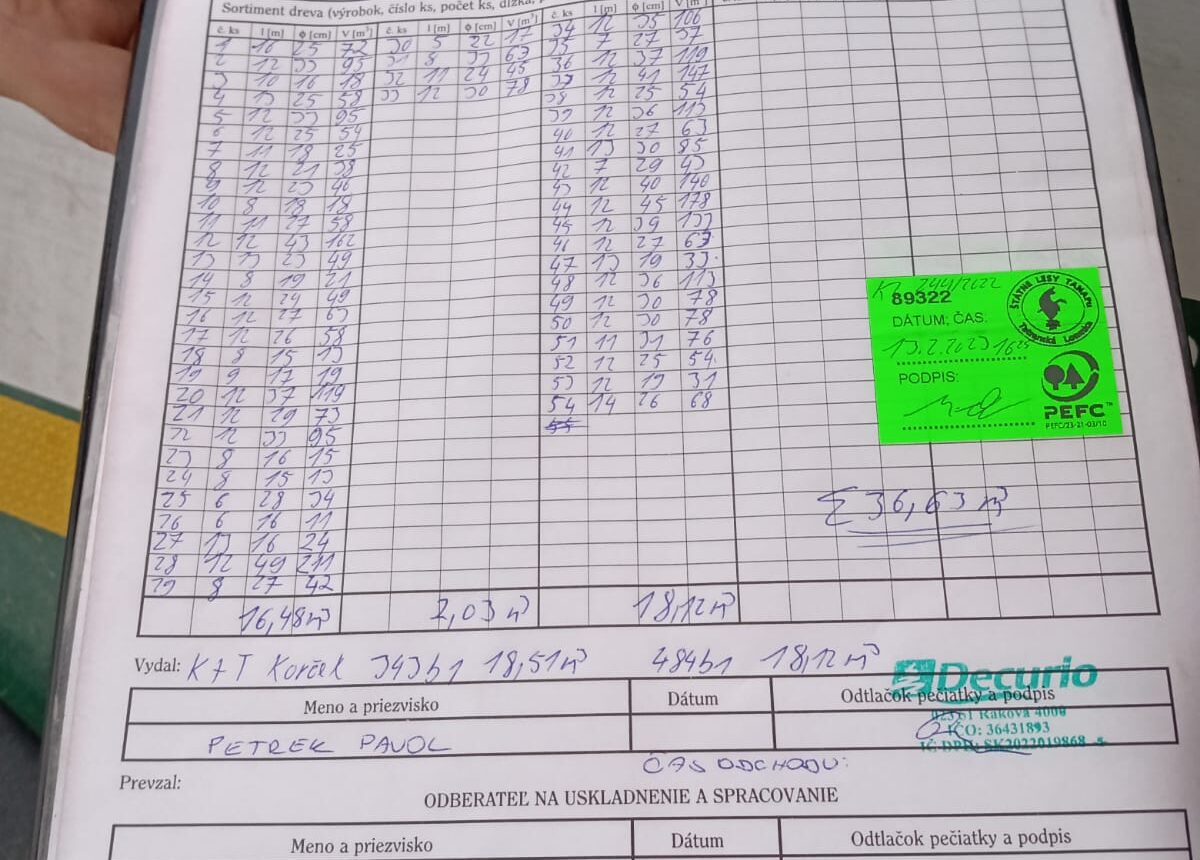 Sortiment dreva (výrobok, číslo ks, počet ks, dĺžka,
č. ks l [m] ϕ [cm] V [m³] č. ks l [m] ϕ [cm] V [m³] č. ks l [m] ϕ [cm] V [m³]
1 16 25 72 30 5 22 17 34 12 35 106
2 12 33 95 31 8 33 63 35 7 27 37
3 10 16 18 32 11 24 45 36 12 37 119
4 13 25 58 33 12 30 78 37 12 41 147
5 12 33 95 38 12 25 54
6 12 25 54 39 12 36 113
7 11 18 25 40 12 27 63
8 12 21 38 41 13 30 85
9 12 23 46 42 7 29 43
10 8 18 18 43 12 40 140
11 11 27 58 44 12 45 178
12 12 43 162 45 12 39 133
13 13 23 49 46 12 27 63
14 8 19 21 47 13 19 33
15 12 24 49 48 12 36 113
16 12 27 63 49 12 30 78
17 12 26 58 50 12 30 78
18 8 15 13 51 11 31 76
19 9 17 19 52 12 25 54
20 12 37 119 53 12 19 31
21 12 29 73 54 14 26 68
22 12 33 95 55
23 8 16 15
24 8 15 13
25 6 28 34
26 6 16 11
27 13 16 24
28 12 49 211
29 8 27 42
244/2022
89322
DÁTUM; ČAS:
13.2.2023 16
PODPIS:
ŠTÁTNE LESY TANAPU
Tatranská Lomnica
PEFC™
PEFC/23-21-03/10
Σ 36,63 m³
16,48 m³ 2,03 m³ 18,12 m³
Vydal: K+T Korček 343b1 18,51 m³ 484b1 18,12 m³
Decurio
Meno a priezvisko Dátum Odtlačok pečiatky a podpis
023 51 Raková 4000
IČO: 36431893
IČ DPH: SK2022019868
PETREK PAVOL
ČAS ODCHODU:
Prevzal:
ODBERATEĽ NA USKLADNENIE A SPRACOVANIE
Meno a priezvisko Dátum Odtlačok pečiatky a podpis